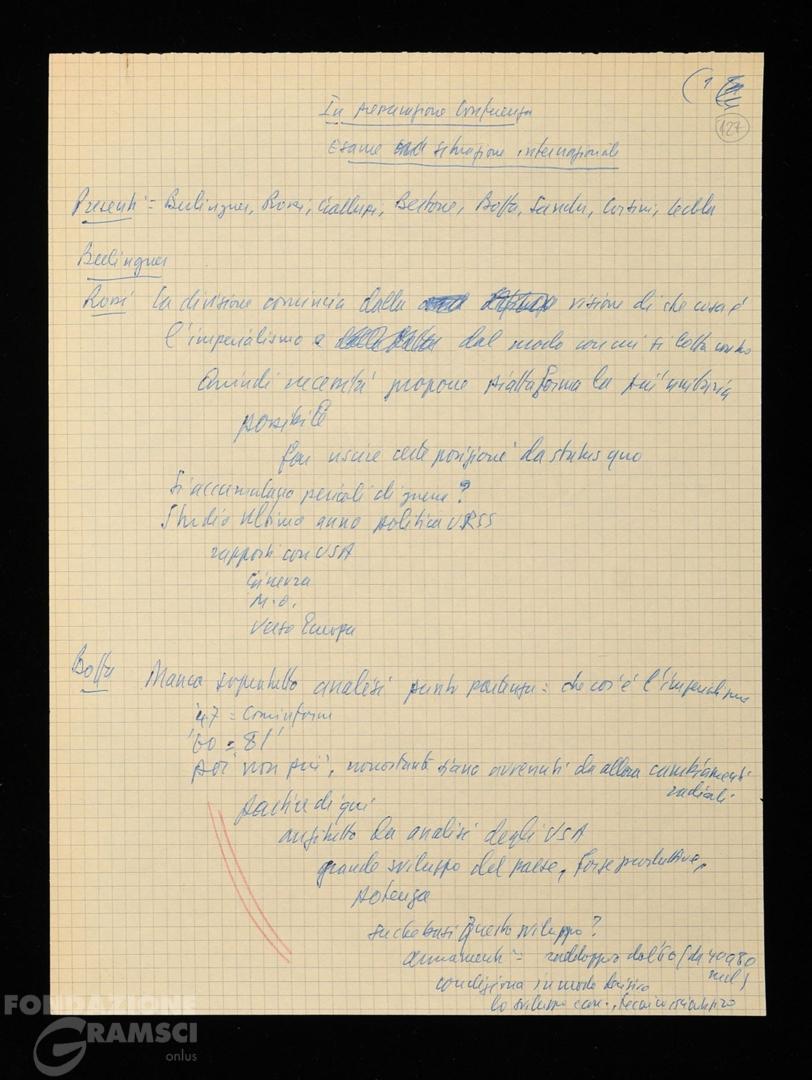 ( 1
127
In preparazione Conferenza
Esame situazione internazionale
Presenti = Berlinguer, Rossi, Galluzzi, Bertone, Boffa, Sandri, Corsini, Ledda
Berlinguer
Rossi La divisione comincia dalla visione di che cosa è
l'imperialismo e dal modo con cui si lotta contro
Quindi necessità propone piattaforma la più unitaria
possibile
far uscire certe posizioni da status quo
Si accumulano pericoli di guerra?
Studio ultimo anno politica URSS
rapporti con USA
Ginevra
M.O.
verso Europa
Boffa Manca soprattutto analisi punto partenza = che cos'è l'imperialismo
'47 = Cominform
'60 = 81
poi non più, nonostante siano avvenuti da allora cambiamenti
radicali
partire di qui
anzitutto da analisi degli USA
grande sviluppo del paese, forze produttive,
potenza
su che basi questo sviluppo?
armamenti = raddoppio dal '60 (da 40 a 80
mil)
condiziona in modo decisivo
lo sviluppo econ., tecnico scientifico
FONDAZIONE
GRAMSCI
onlus